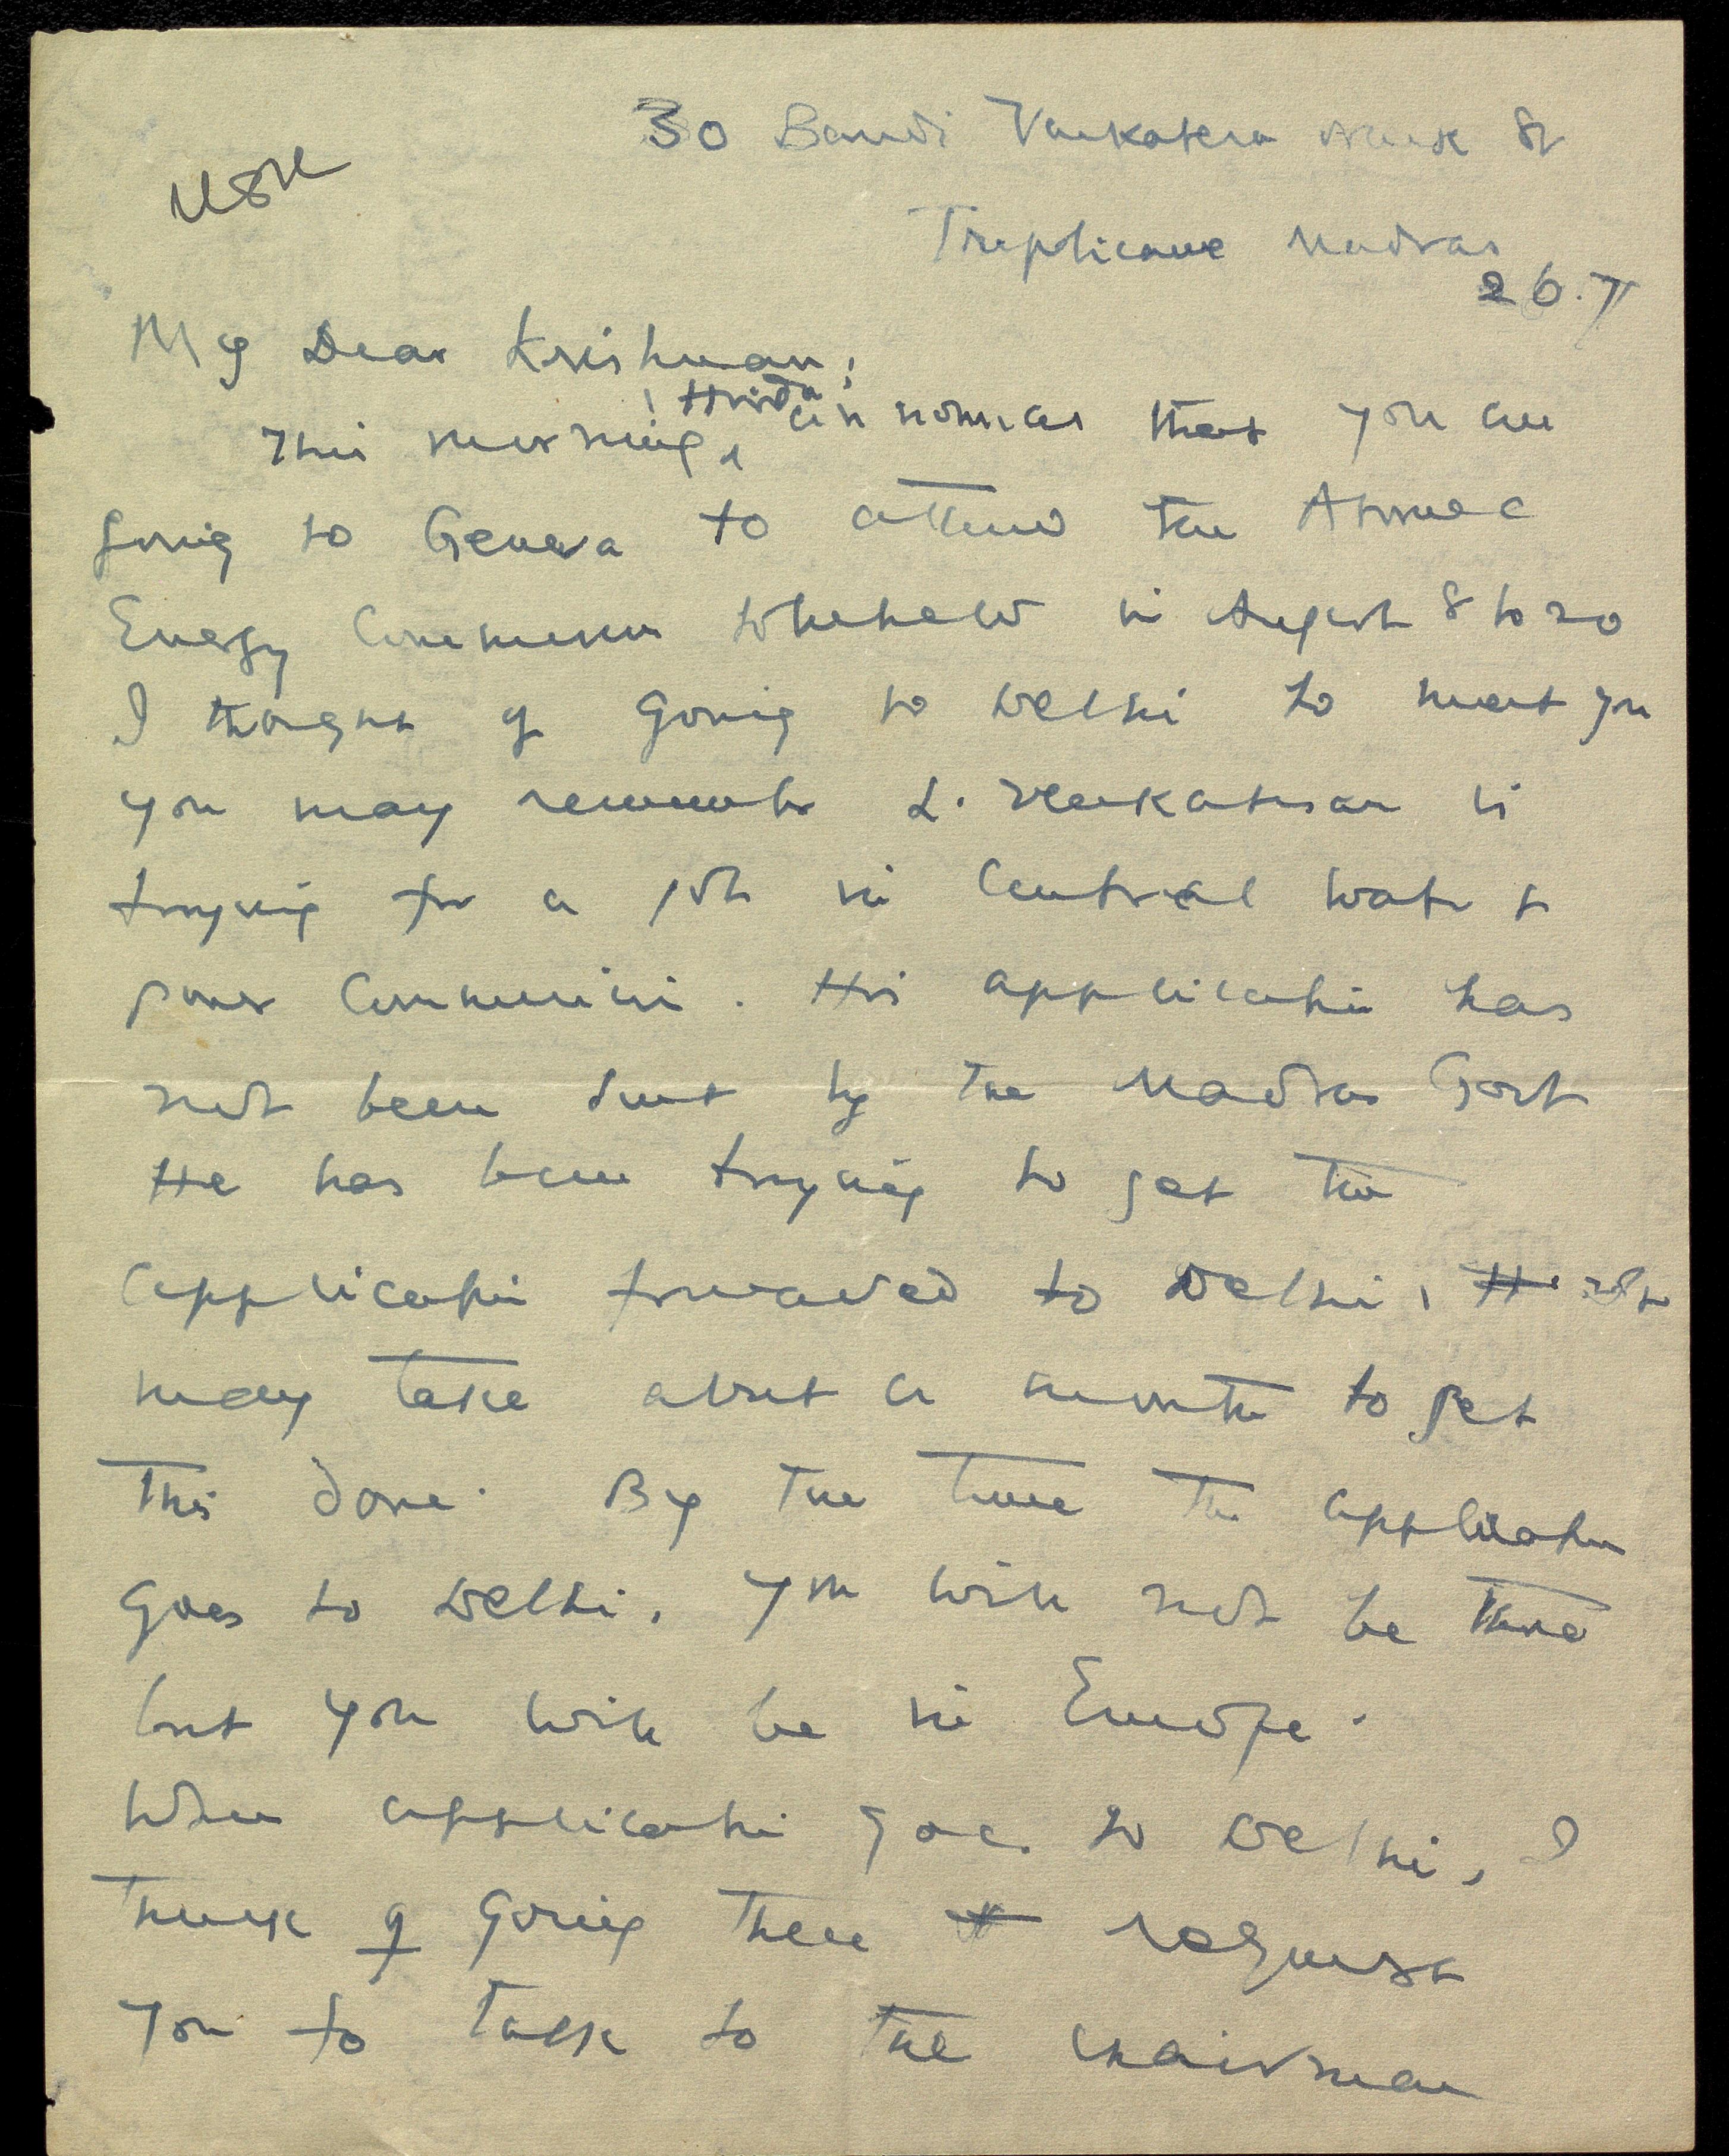 30 Bandi Venkatesa Naick St
Triplicane Madras
26.7
My Dear Krishnan,
This morning, Hindu announces that you are
going to Geneva to attend the Atomic
Energy Commission to be held in August 8 to 20
I thought of going to Delhi to meet you
you may remember L. Venkatesan is
trying for a job in Central Water &
power Commission. His application has
not been sent by the Madras Govt
He has been trying to get the
application forwarded to Delhi, It
may take about a month to get
this done. By the time the application
goes to Delhi, you will not be there
but you will be in Europe.
When application goes to Delhi, I
think of going there to request
you to talk to the chairman